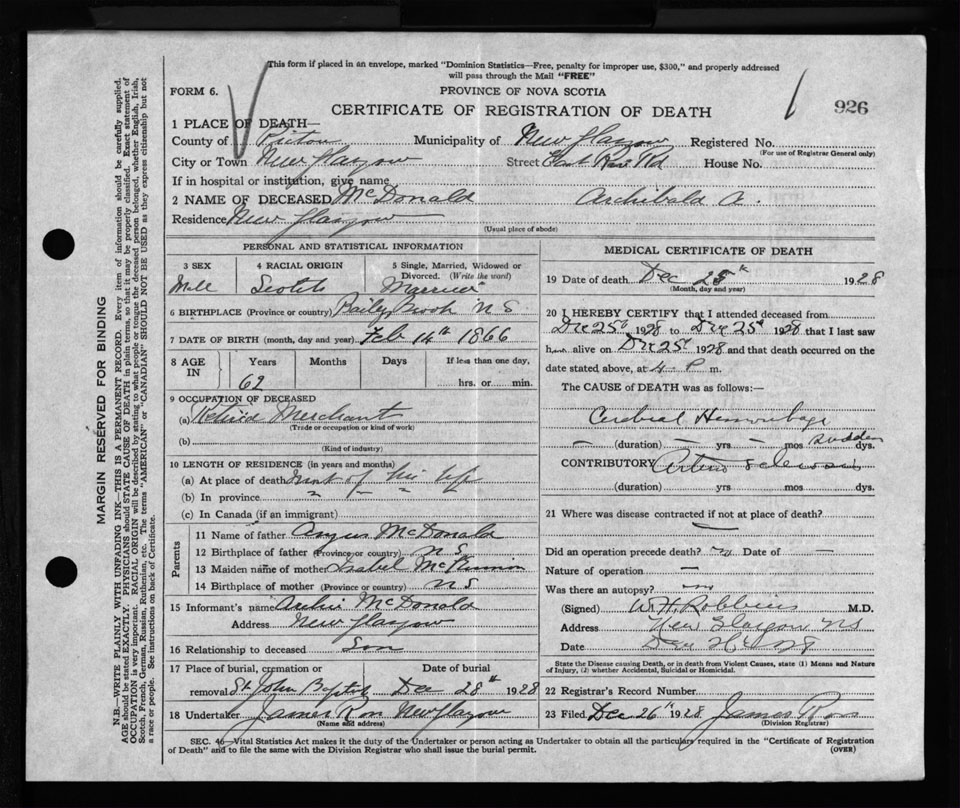 This form if placed in an envelope, marked "Dominion Statistics—Free, penalty for improper use, $300," and properly addressed
will pass through the Mail "FREE"
FORM 6.
PROVINCE OF NOVA SCOTIA
926
CERTIFICATE OF REGISTRATION OF DEATH
1 PLACE OF DEATH—
County of Pictou Municipality of New Glasgow Registered No.
(For use of Registrar General only)
City or Town New Glasgow Street East River Rd House No.
If in hospital or institution, give name
2 NAME OF DECEASED McDonald Archibald A.
Residence New Glasgow
(Usual place of abode)
PERSONAL AND STATISTICAL INFORMATION
3 SEX 4 RACIAL ORIGIN 5 Single, Married, Widowed or Divorced. (Write the word)
Male Scotch Married
6 BIRTHPLACE (Province or country) Baily Brook N S
7 DATE OF BIRTH (month, day and year) Feb 14th 1866
8 AGE IN Years Months Days If less than one day,
62 hrs. or min.
9 OCCUPATION OF DECEASED
(a) Retired Merchant
(Trade or occupation or kind of work)
(b)
(Kind of industry)
10 LENGTH OF RESIDENCE (in years and months)
(a) At place of death of his life
(b) In province " " "
(c) In Canada (if an immigrant)
Parents
11 Name of father Angus McDonald
12 Birthplace of father (Province or country) N S
13 Maiden name of mother Isabel
14 Birthplace of mother (Province or country) N S
15 Informant's name Archie McDonald
Address New Glasgow
16 Relationship to deceased Son
17 Place of burial, cremation or Date of burial
removal St John Baptist Dec 28th 1928
18 Undertaker James Ross New Glasgow
(Name and address)
MEDICAL CERTIFICATE OF DEATH
19 Date of death Dec 25th 1928
(Month, day and year)
20 I HEREBY CERTIFY that I attended deceased from
Dec 25th 1928 to Dec 25th 1928 that I last saw
him alive on Dec 25th 1928 and that death occurred on the
date stated above, at 4 P m.
The CAUSE of DEATH was as follows:—
Cerebral Hemorrhage
— (duration) — yrs — mos sudden dys.
CONTRIBUTORY Arterio sclerosis
(duration) yrs. mos. dys.
21 Where was disease contracted if not at place of death?
Did an operation precede death? no Date of —
Nature of operation —
Was there an autopsy? no
(Signed) W.H. Robbins M.D.
Address New Glasgow NS
Date Dec
State the Disease causing Death, or in death from Violent Causes, state (1) Means and Nature
of Injury, (2) whether Accidental, Suicidal or Homicidal.
22 Registrar's Record Number
23 Filed Dec 26th 1928 James Ross
(Division Registrar)
SEC. 46—Vital Statistics Act makes it the duty of the Undertaker or person acting as Undertaker to obtain all the particulars required in the "Certificate of Registration
of Death" and to file the same with the Division Registrar who shall issue the burial permit. (OVER)
MARGIN RESERVED FOR BINDING
N.B.—WRITE PLAINLY WITH UNFADING INK—THIS IS A PERMANENT RECORD. Every item of information should be carefully supplied.
AGE should be stated EXACTLY. PHYSICIANS should STATE CAUSE OF DEATH in plain terms, so that it may be properly classified. Exact statement of
OCCUPATION is very important. RACIAL ORIGIN will be described by stating to what people or tongue the deceased person belonged, whether English, Irish,
Scotch, French, German, Russian, Ruthenian, etc. The terms "AMERICAN" or "CANADIAN" SHOULD NOT BE USED as they express citizenship but not
a race or people. See instructions on back of Certificate.